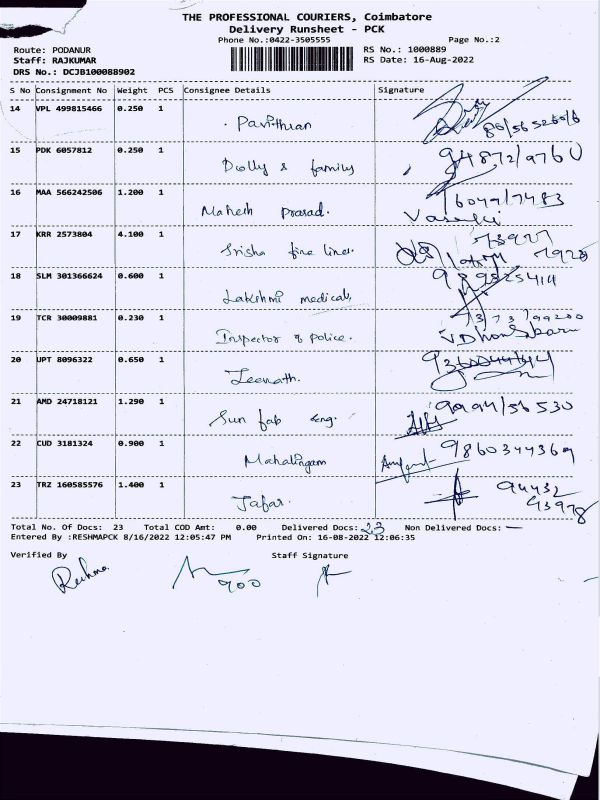 THE PROFESSIONAL COURIERS, Coimbatore
Delivery Runsheet - PCK
Phone No.:0422-3505555 Page No.:2
Route: PODANUR RS No.: 1000889
Staff: RAJKUMAR RS Date: 16-Aug-2022
DRS No.: DCJB100088902
S No Consignment No Weight PCS Consignee Details Signature
14 VPL 499815466 0.250 1
Pavithuan
15 PDK 6057812 0.250 1
Dolly & family 94872/9760
16 MAA 566242506 1.200 1
Mahesh prasad. Vasuki
17 KRR 2573804 4.100 1
Srisha fire liner
18 SLM 301366624 0.600 1
Lakshmi medicals
19 TCR 30009881 0.230 1
Inspector of police.
20 UPT 8096322 0.650 1
Leenath.
21 AMD 24718121 1.290 1
Sun fab Eng. 9994/56530
22 CUD 3181324 0.900 1
Mahalingam 9860344369
23 TRZ 160585576 1.400 1 94432
Jafar. 43978
Total No. Of Docs: 23 Total COD Amt: 0.00 Delivered Docs: 23 Non Delivered Docs: —
Entered By :RESHMAPCK 8/16/2022 12:05:47 PM Printed On: 16-08-2022 12:06:35
Verified By Staff Signature
Reshma 900